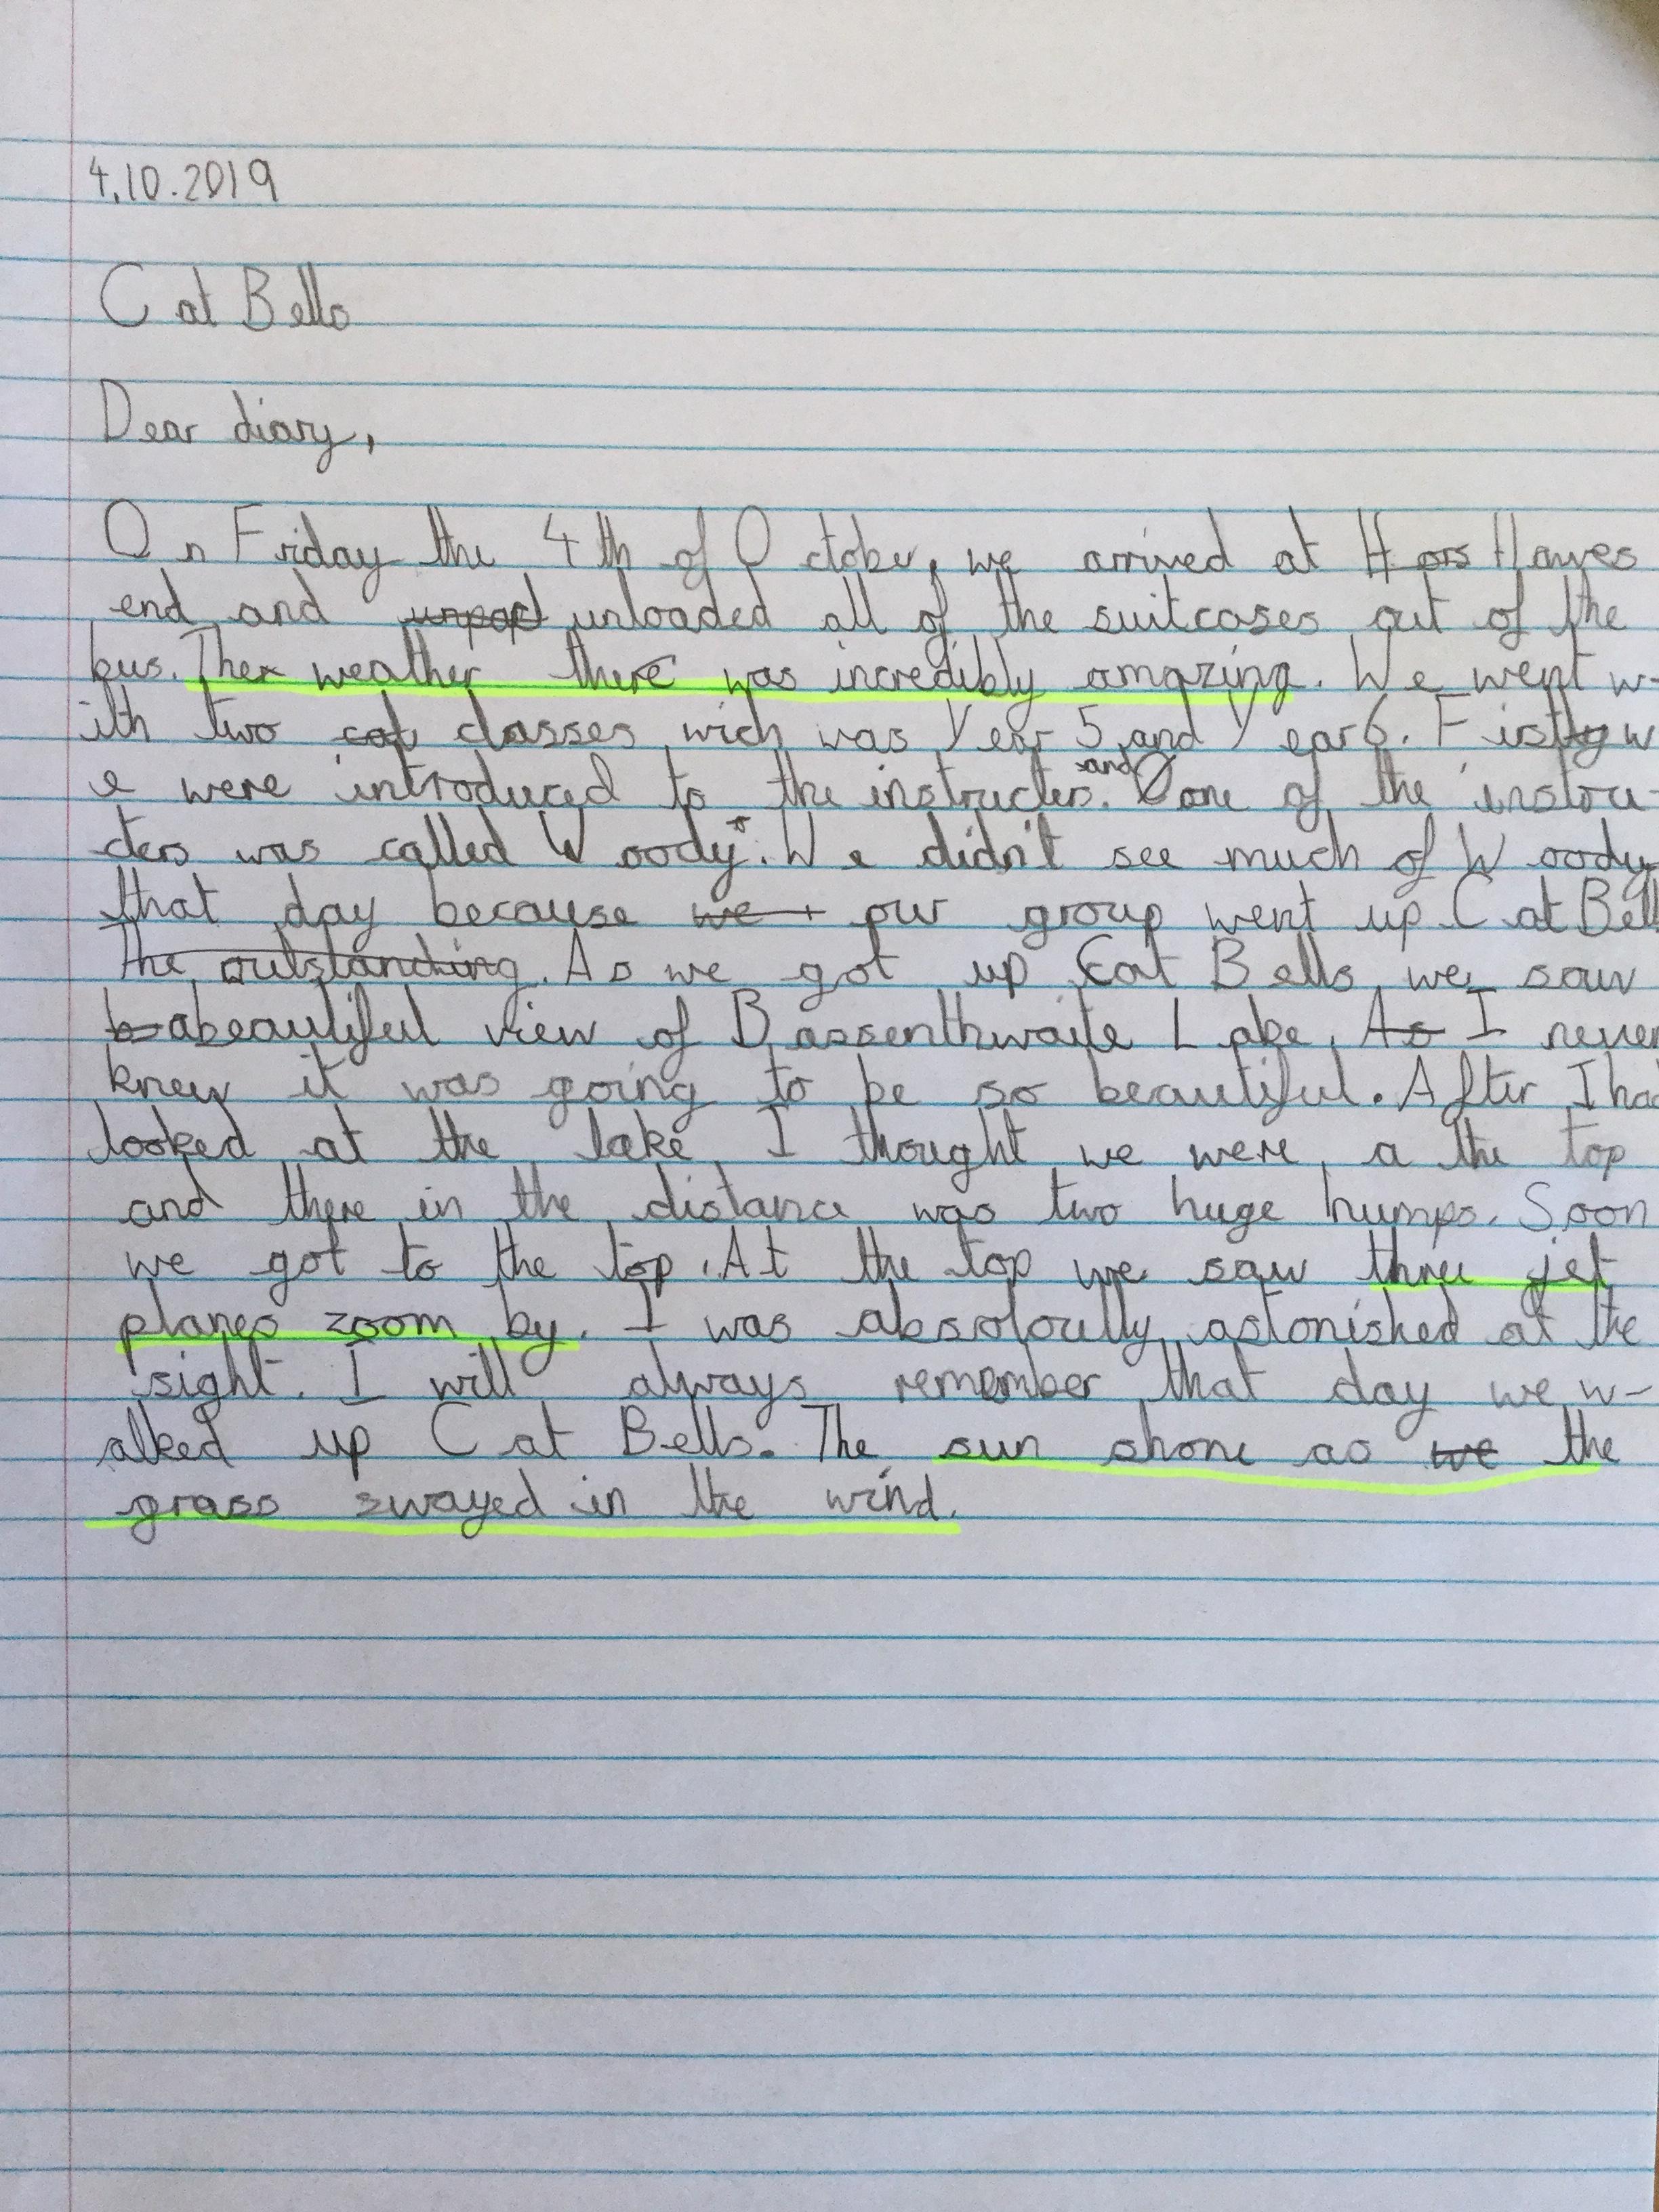 4.10.2019
Cat Bells
Dear diary,
On Friday the 4th of October, we arrived at Hors Hawes
end and unpack unloaded all of the suitcases out of the
bus. Ther weather there was incredibly amazing. We went w-
ith two cat classes wich was Year 5 and Year 6. Firstly w
e were introduced to the instructers. and one of the instru-
cters was called Woody. We didn't see much of Woody
that day because we our group went up Cat Bell
The outstanding. As we got up Cat Bells we saw
b abeautiful view of Bassenthwaite Lake. As I never
knew it was going to be so beautiful. After I had
looked at the lake I thought we were a the top
and there in the distance was two huge humps. Soon
we got to the top. At the top we saw three jet
planes zoom by. I was absoloutly astonished at the
sight. I will always remember that day we w-
alked up Cat Bells. The sun shone as we the
grass swayed in the wind.